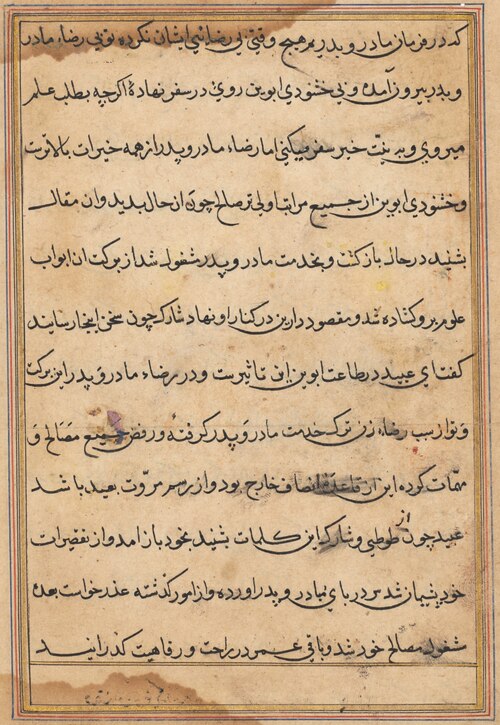 که در فرمان مادر و پدر بهر هیچ وقتی بی رضائی ایشان نکرده تو بی رضاء مادر
و پدر بیرون آمدهٔ و بی خشنودی ابوین روی در سفر نهادهٔ اگرچه بطلب علم
میروی و به نیت خیر سفر میکنی اما رضاء مادر و پدر از همه خیرات بالاترست
و خشنودی ابوین از جمیع مراتب اولی تر صالح چون از حال بدید وان مقال
بشنید در حال بازگشت و بخدمت مادر و پدر مشغول شد از برکت ان ابواب
علوم برو گشاده شد و مقصود دارین در کنار او نهاد شارک چون سخن اینجا رسانید
گفت ای عبید در طاعت ابوین این تاثیرست و در رضاء مادر و پدر این برکت
و تو از سبب رضاء زن ترک خدمت مادر و پدر گرفتهٔ و رفض جمیع مصالح و
مهمات کرده این از قاعدهٔ انصاف خارج بود و از رسم مروت بعید باشد
عبید چون از طوطی و شارک این کلمات بشنید بخود باز امد و از تقصیرات
خود پشیمان شد سر در پای مادر و پدر اورده و از امور گذشته عذر خواست بعده
مشغول مصالح خود شد و باقی عمر در راحت و رفاهیت گذرانید